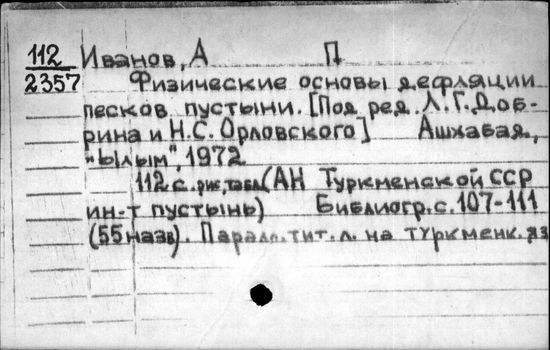 112 Иванов, А П
2357 Физические основы дефляции
песков пустыни. [Под ред. Л.Г. Доб-
рина и Н.С. Орловского] Ашхабад,
"Ылым", 1972
112 с. рис., табл. (АН Туркменской ССР
ин-т пустынь) Библиогр. с. 107-111
(55 назв). Паралл. тит. л. на туркменк. яз